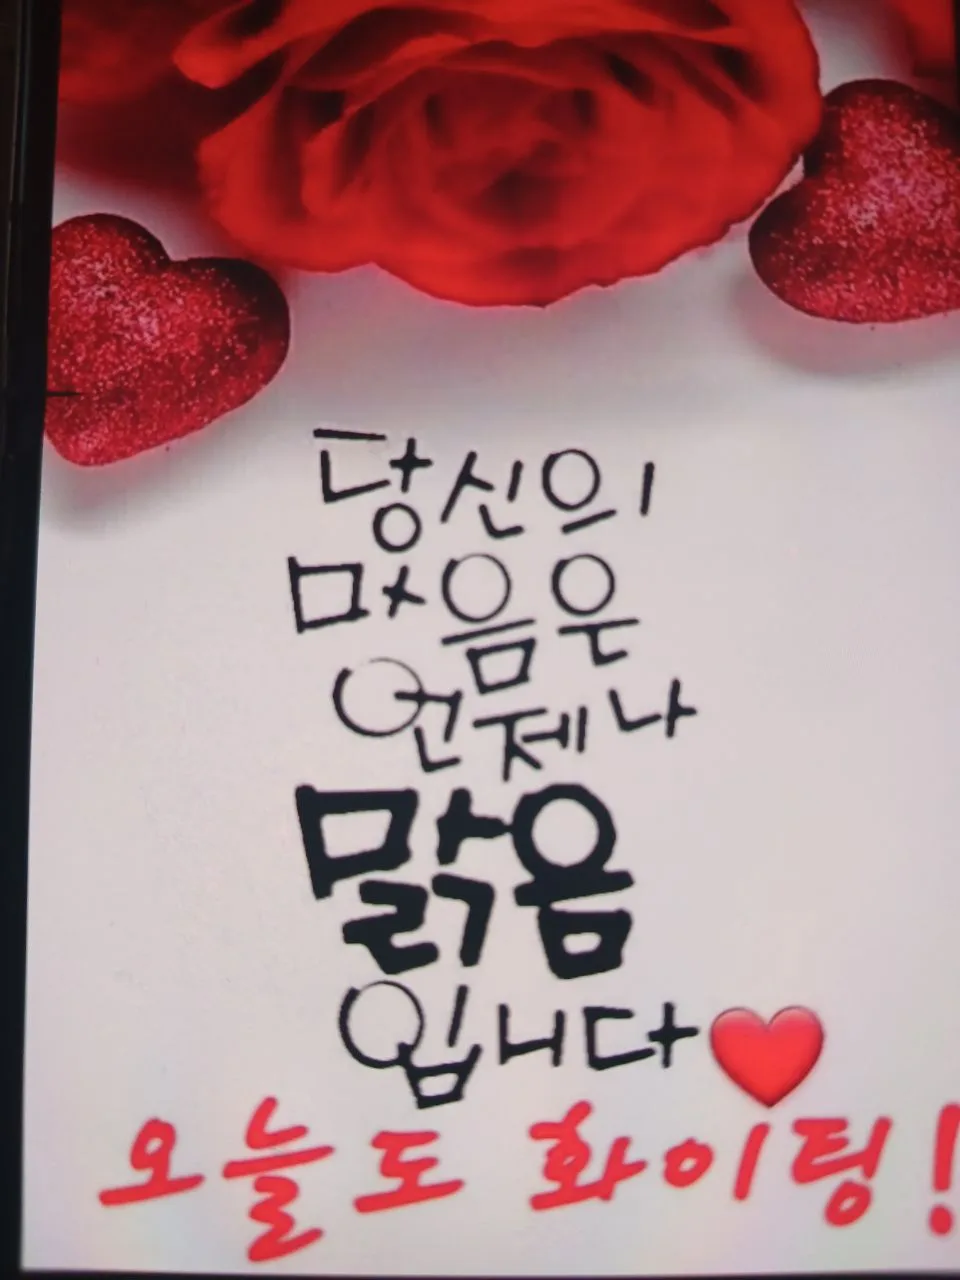 당신의
마음은
언제나
맑음
입니다❤️
오늘도 화이팅!